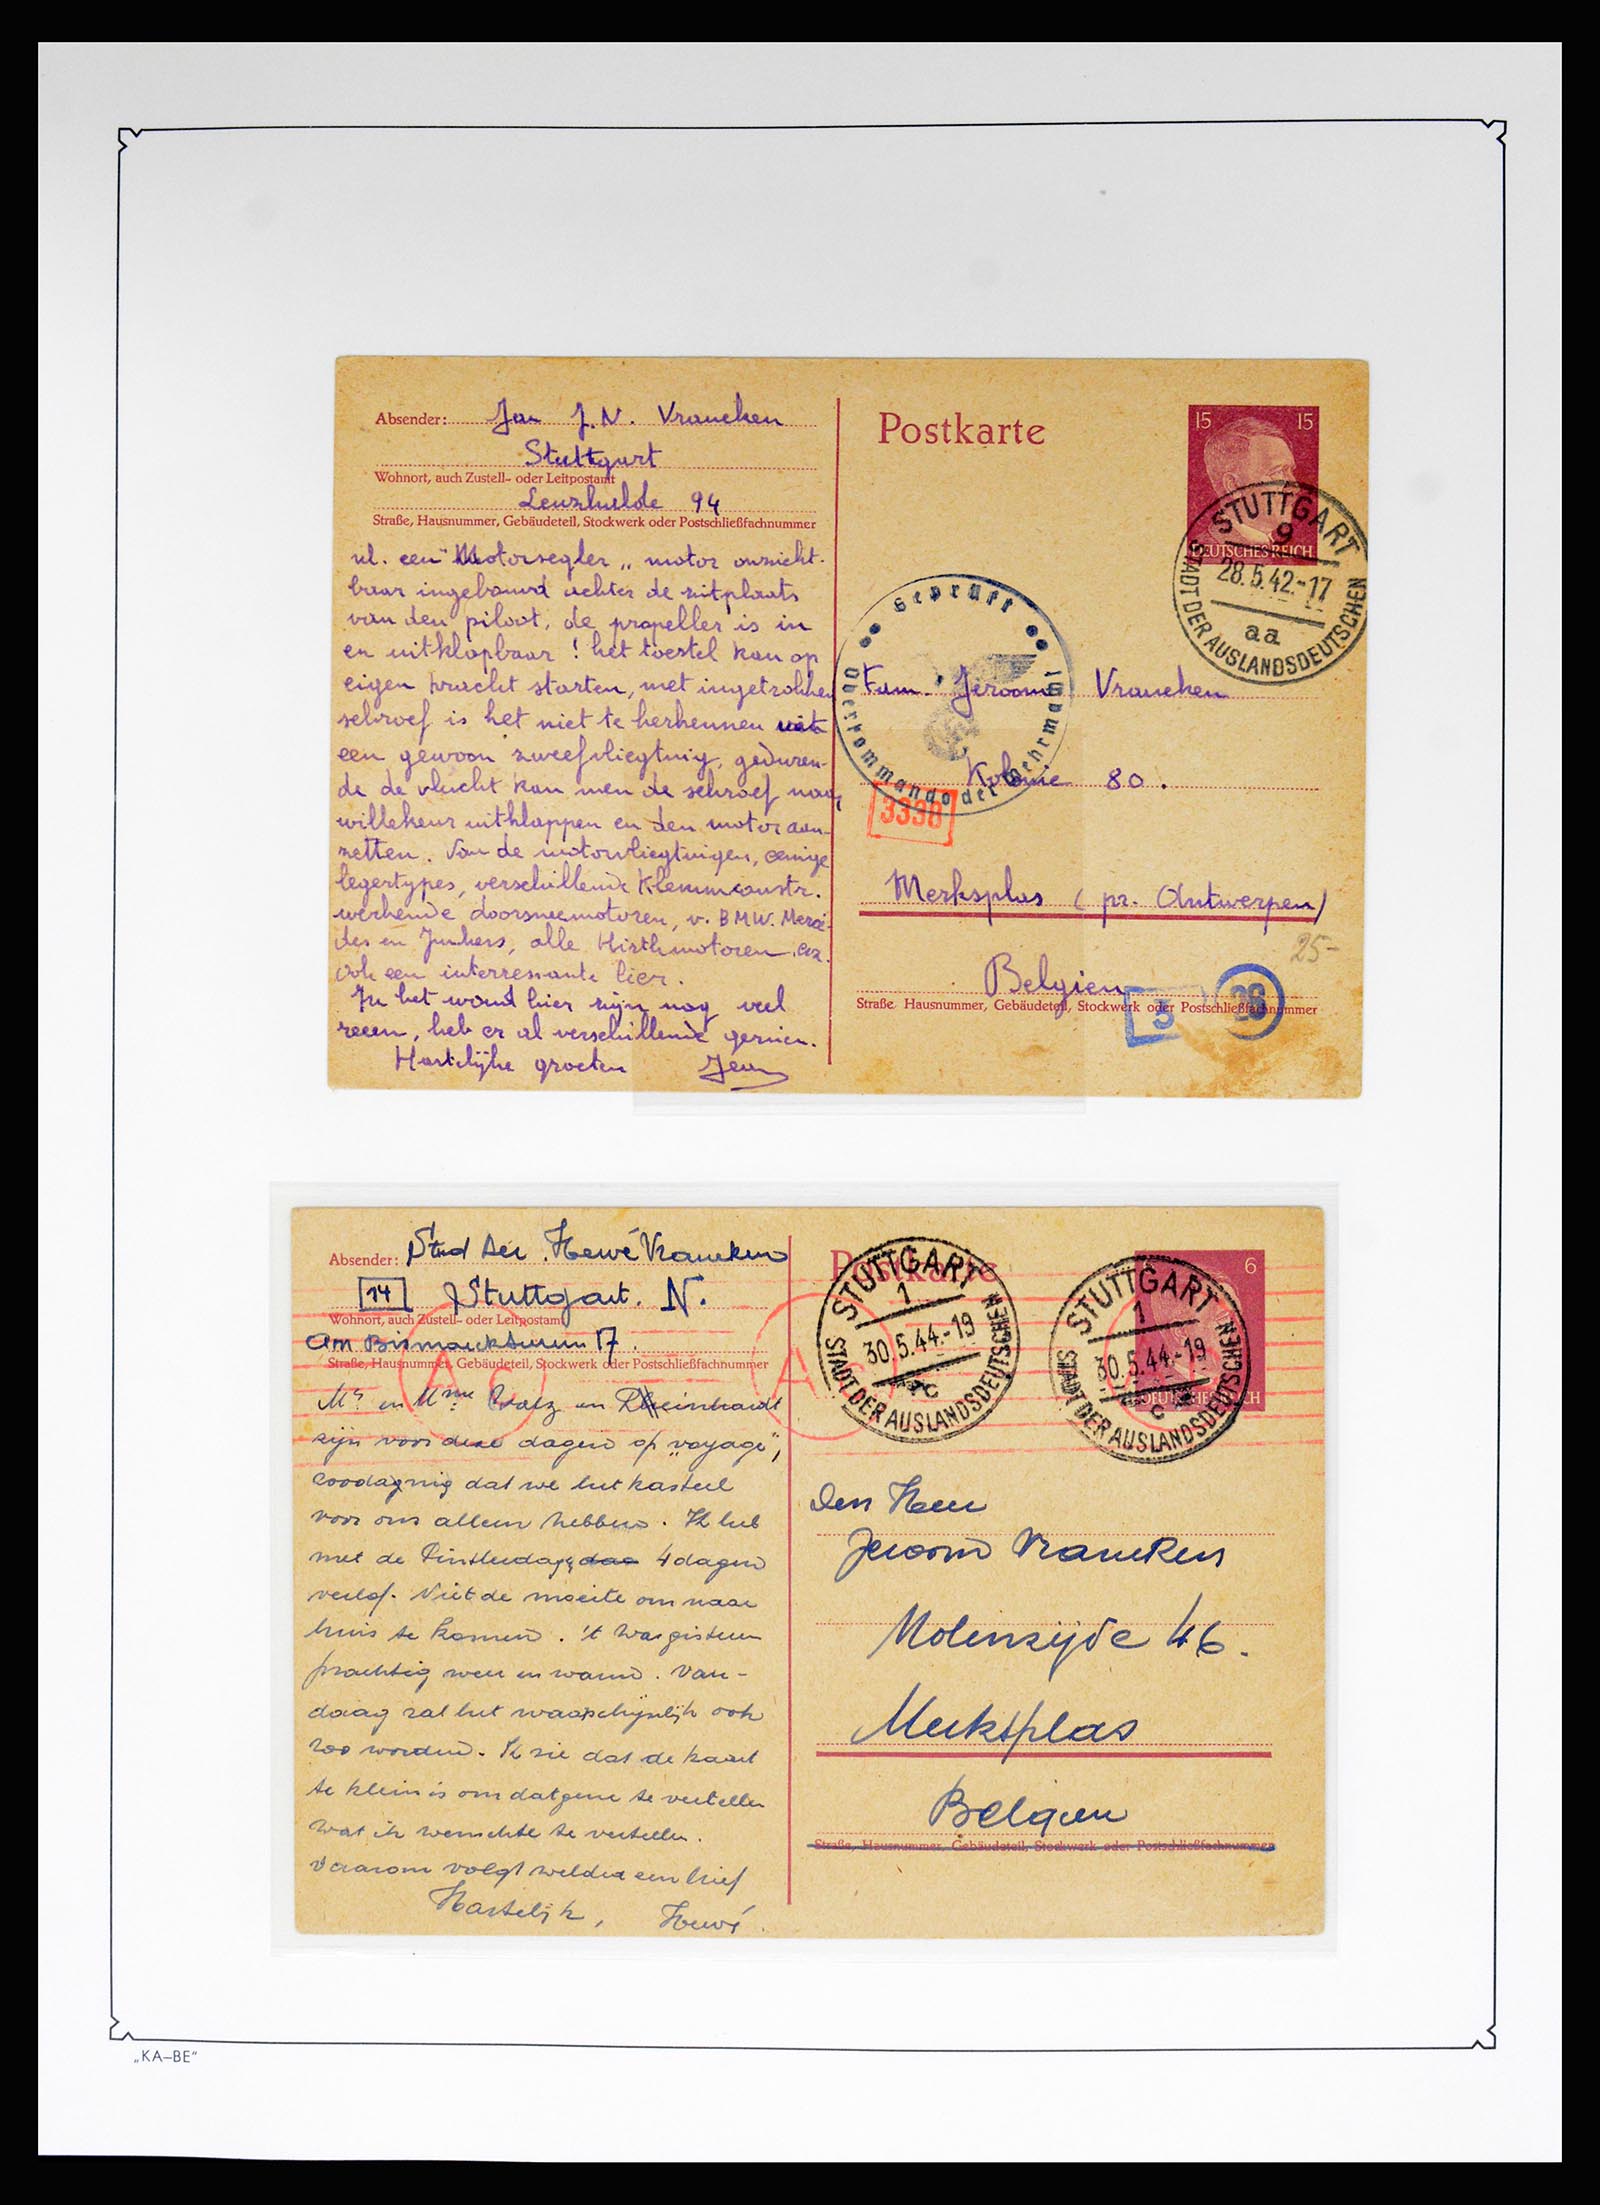 Absender: Jan J. N. Vrancken
Stuttgart
Wohnort, auch Zustell- oder Leitpostamt
Lenzhalde 94
Straße, Hausnummer, Gebäudeteil, Stockwerk oder Postschließfachnummer
nl. een "Motorsegler„ motor onzicht-
baar ingebouwd achter de zitplaats
van den piloot, de propeller is in
en uitklapbaar ! het toestel kan op
eigen kracht starten, met ingetrokken
schroef is het niet te herkennen uit
een gewoon zweefvliegtuig, geduren-
de de vlucht kan men de schroef naar
willekeur uitklappen en den motor aan-
zetten. Van de motorvliegtuigen, eenige
legertypes, verschillende Klemmconstr.
werkende doorsneemotoren, v. BMW. Merce-
des en Junkers, alle Hirthmotoren. enz.
Ook een interressante lier.
In het woud hier zijn nog veel
reeen, heb er al verschillende gezien.
Hartelijke groeten Jean
Postkarte
15 15
DEUTSCHES REICH
STUTTGART
9
28.5.42.-17
aa
STADT DER AUSLANDSDEUTSCHEN
Geprüft
Oberkommando der Wehrmacht
Fam. Jeroom Vrancken
Kolonie 80.
3338
Merksplas ( pr. Antwerpen)
25-
Belgien
Straße, Hausnummer, Gebäudeteil, Stockwerk oder Postschließfachnummer
3
Absender: Hervé Vrancken
14 Stuttgart. N.
Wohnort, auch Zustell- oder Leitpostamt
Am Bismarckturm 17.
Straße, Hausnummer, Gebäudeteil, Stockwerk oder Postschließfachnummer
Mr en Mme en Rheinhardt
zijn voor deze dagen op „voyage",
zoodanig dat we het kasteel
voor ons alleen hebben. Ik heb
met de Pinsterdagen 4 dagen
verlof. Niet de moeite om naar
huis te komen. 't Was gisteren
prachtig weer en warm. Van-
daag zal het waarschijnlijk ook
zoo worden. Ik zie dat de kaart
te klein is om datgene te vertellen
wat ik wenschte te vertellen.
Daarom volgt weldra een brief
Hartelijk, Hervé.
Postkarte
6
DEUTSCHES REICH
STUTTGART
1
30.5.44.-19
c
STADT DER AUSLANDSDEUTSCHEN
STUTTGART
1
30.5.44.-19
c
STADT DER AUSLANDSDEUTSCHEN
Den Heer
Jeroom Vrancken
Molenzijde 46.
Merksplas
Belgien
Straße, Hausnummer, Gebäudeteil, Stockwerk oder Postschließfachnummer
„KA–BE"